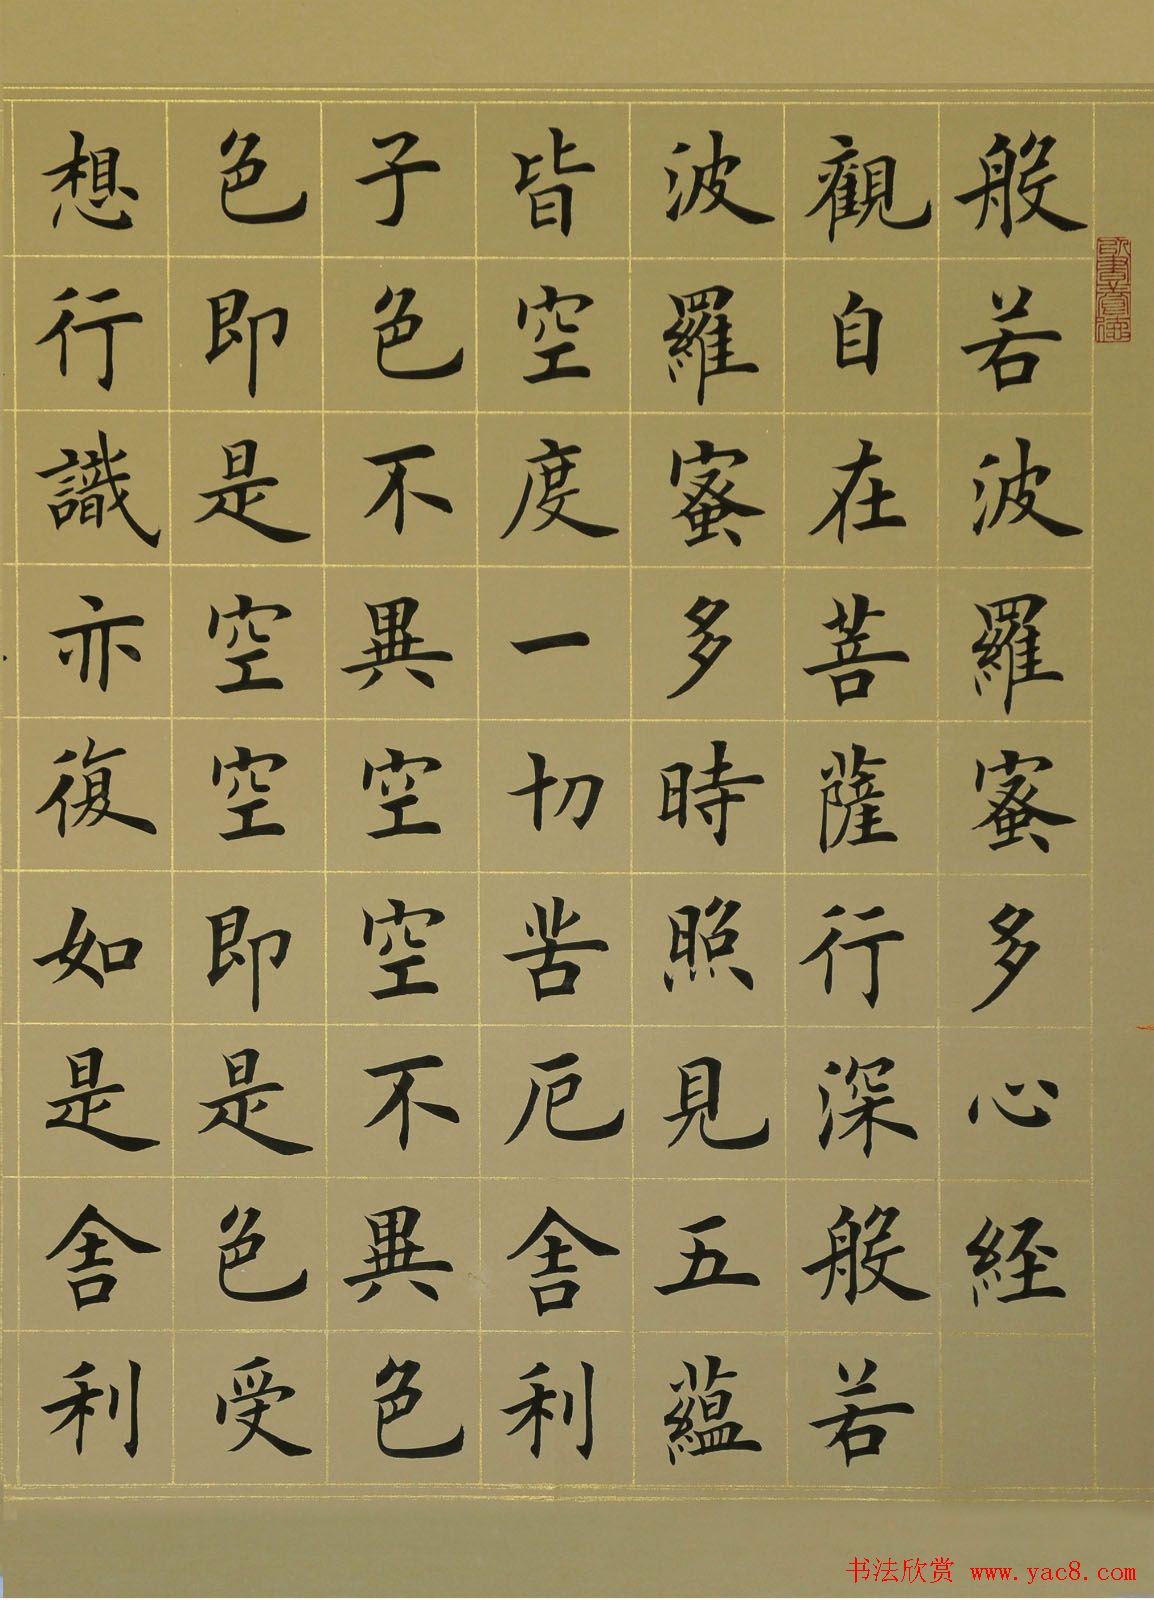 般若波羅蜜多心經
觀自在菩薩行深般若
波羅蜜多時照見五蘊
皆空度一切苦厄舍利
子色不異空空不異色
色即是空空即是色受
想行識亦復如是舍利
书法欣赏 www.yac8.com